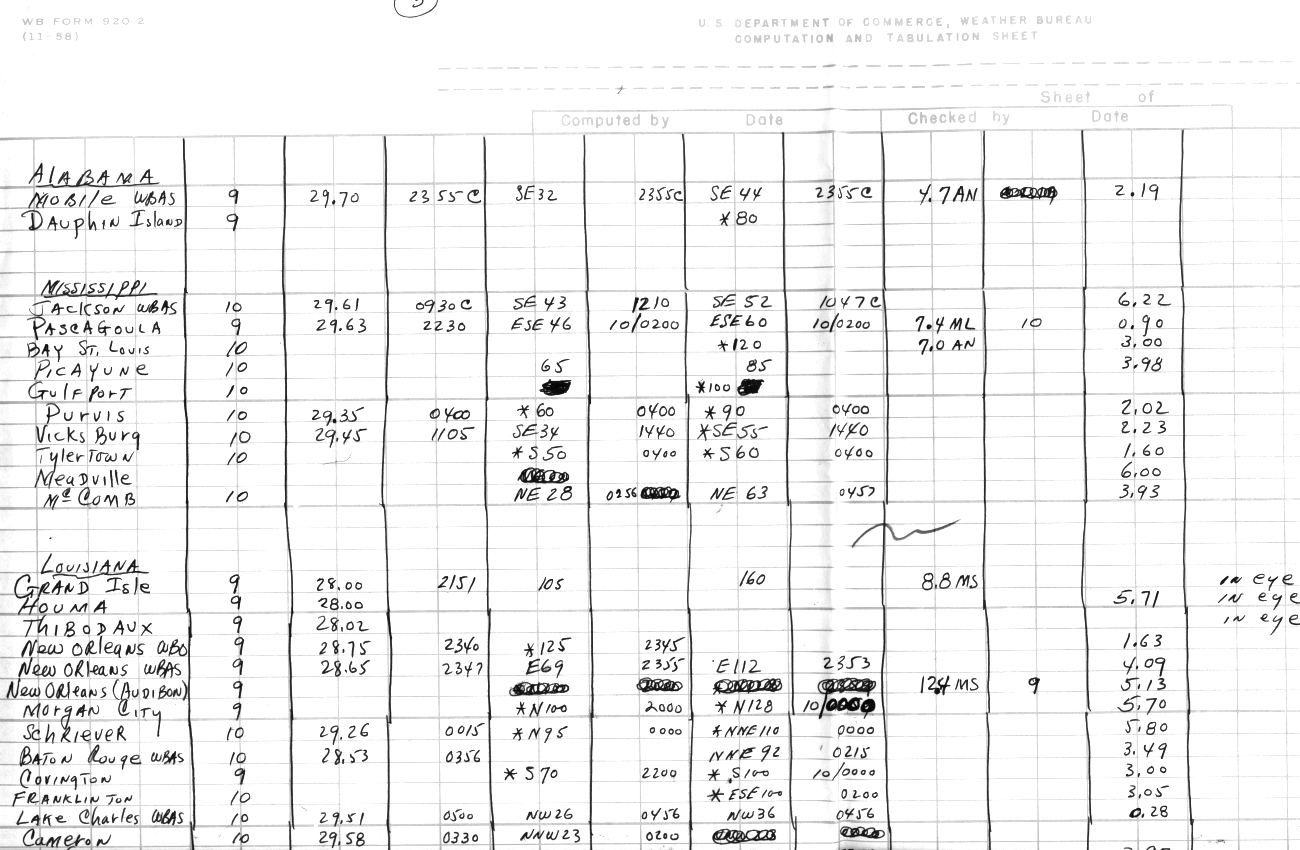 3
WB FORM 920-2
(11-58)
U. S. DEPARTMENT OF COMMERCE, WEATHER BUREAU
COMPUTATION AND TABULATION SHEET
Sheet of
Computed by Date Checked by Date
ALABAMA
MOBILE WBAS 9 29.70 2355C SE32 2355C SE 44 2355C 4.7AN 2.19
DAUPHIN ISLAND 9 *80
MISSISSIPPI
JACKSON WBAS 10 29.61 0930C SE 43 1210 SE 52 1047C 6.22
PASCAGOULA 9 29.63 2230 ESE 46 10/0200 ESE60 10/0200 7.4 ML 10 0.90
BAY ST. LOUIS 10 *120 7.0 AN 3.00
PICAYUNE 10 65 85 3.98
GULFPORT 10 *100
PURVIS 10 29.35 0400 *60 0400 *90 0400 2.02
VICKSBURG 10 29.45 1105 SE34 1440 *SE55 1440 2.23
TYLERTOWN 10 *S50 0400 *S60 0400 1.60
MEADVILLE 6.00
McCOMB 10 NE 28 0256 NE 63 0457 3.93
LOUISIANA
GRAND ISLE 9 28.00 2151 105 160 8.8 MS IN eye
HOUMA 9 28.00 5.71 IN eye
THIBODAUX 9 28.02 IN eye
NEW ORLEANS WBO 9 28.75 2340 *125 2345 1.63
NEW ORLEANS WBAS 9 28.65 2347 E69 2355 E112 2353 4.09
NEW ORLEANS (AUDIBON) 9 12.4 MS 9 5.13
MORGAN CITY 9 *N100 2000 *N128 10/0000 5.70
SCHRIEVER 10 29.26 0015 *N95 0000 *NNE110 0000 5.80
BATON ROUGE WBAS 10 28.53 0356 NNE 92 0215 3.49
COVINGTON 9 *S70 2200 *S100 10/0000 3.00
FRANKLINTON 10 *ESE100 0200 3.05
LAKE CHARLES WBAS 10 29.51 0500 NW26 0456 NW36 0456 0.28
CAMERON 10 29.58 0330 NNW23 0200